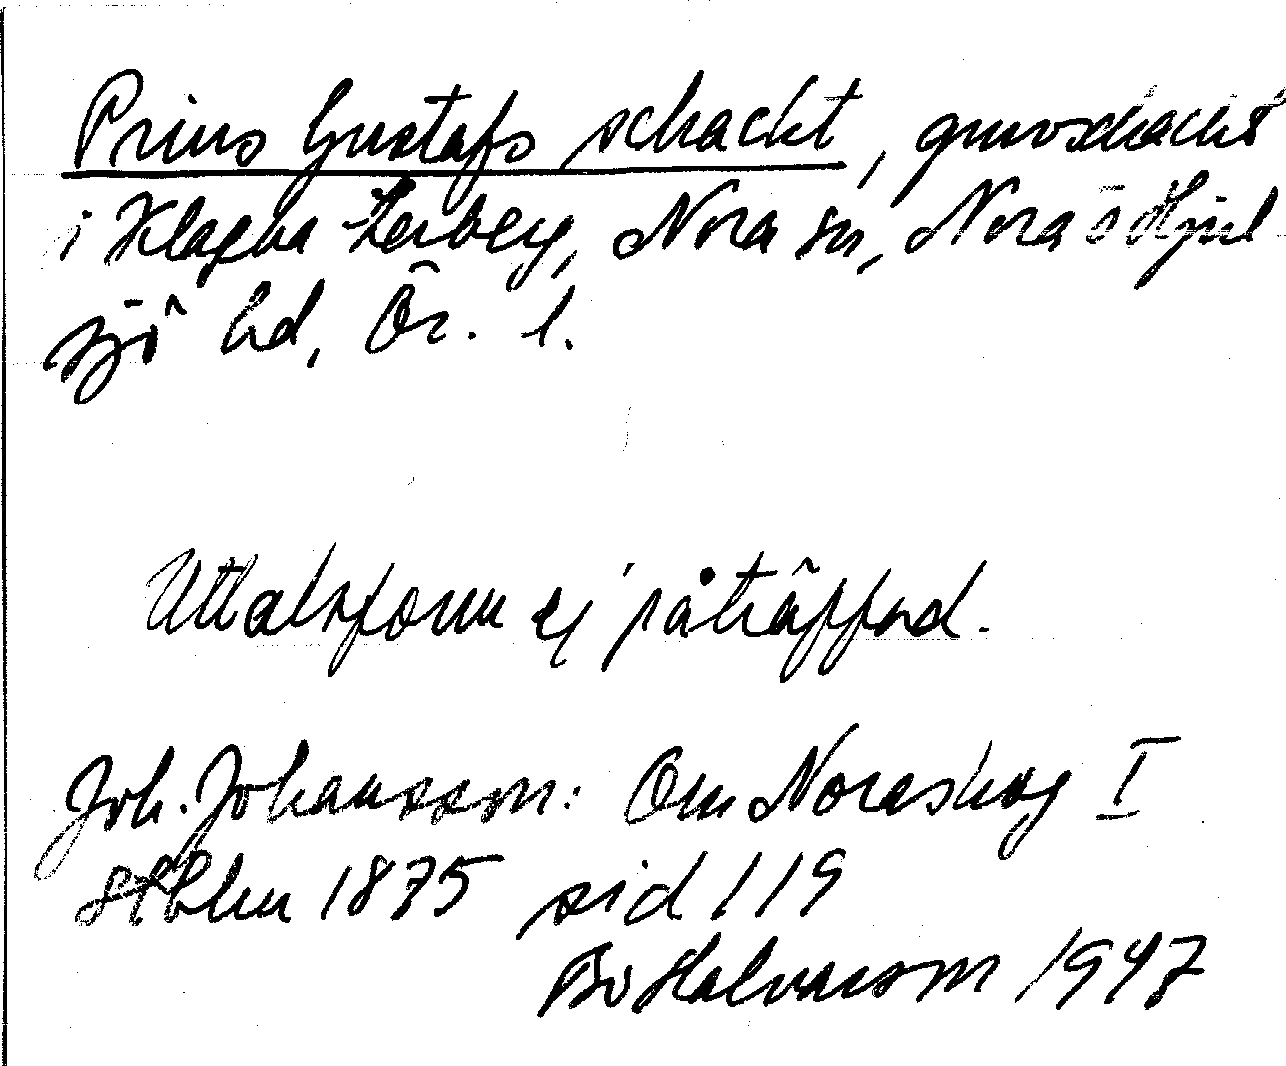 Prins Gustafs schackt, gruvschackt
i Klagba Lerberg, Nora sn, Nora o Hjul
sjö hd, Ör. l.
Uttalsform ej påträffad.
Joh. Johansson: Om Noraskog I
Sthlm 1875 sid 119
Bo Halvarson 1947